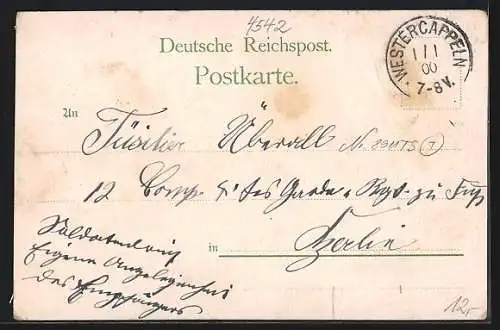 4542
Deutsche Reichspost.
Postkarte.
WESTERCAPPELN
1/1
00
7-8V.
An
Füsilier Überall
12 Comp 4tes Garde Regt. zu Fuß
in Berlin
Soldatenbrief
Eigene Angelegenheit
des Empfängers
12,-